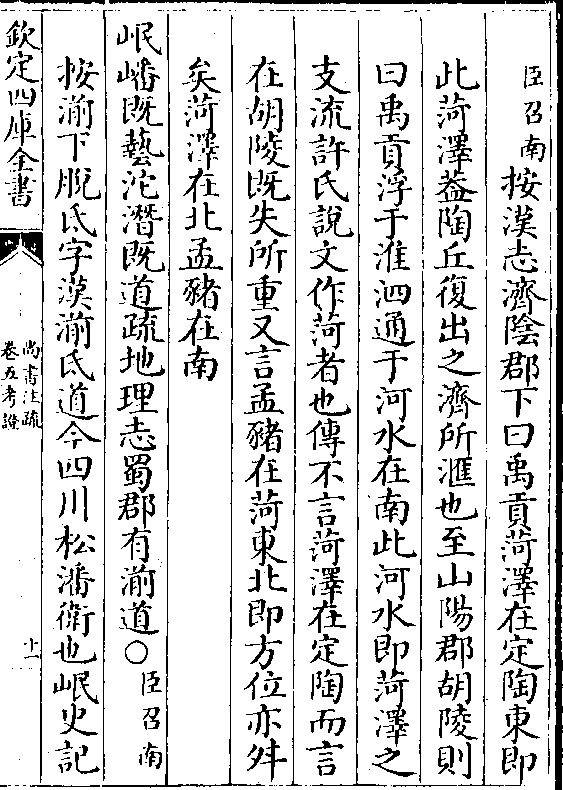 臣召南按漢志濟陰郡下曰禹貢菏澤在定陶東即
此菏澤葢陶丘復出之濟所滙也至山陽郡胡陵則
曰禹貢浮于淮泗通于河水在南此河水即菏澤之
支流許氏說文作菏者也傳不言菏澤在定陶而言
在胡陵既失所重又言孟豬在菏東北即方位亦舛
矣菏澤在北孟豬在南
岷嶓既藝沱潛既道疏地理志蜀郡有湔道○臣召南
按湔下脫氐字漢湔氐道今四川松潘衛也岷史記
欽定四庫全書
尚書注疏
卷五考證
十一